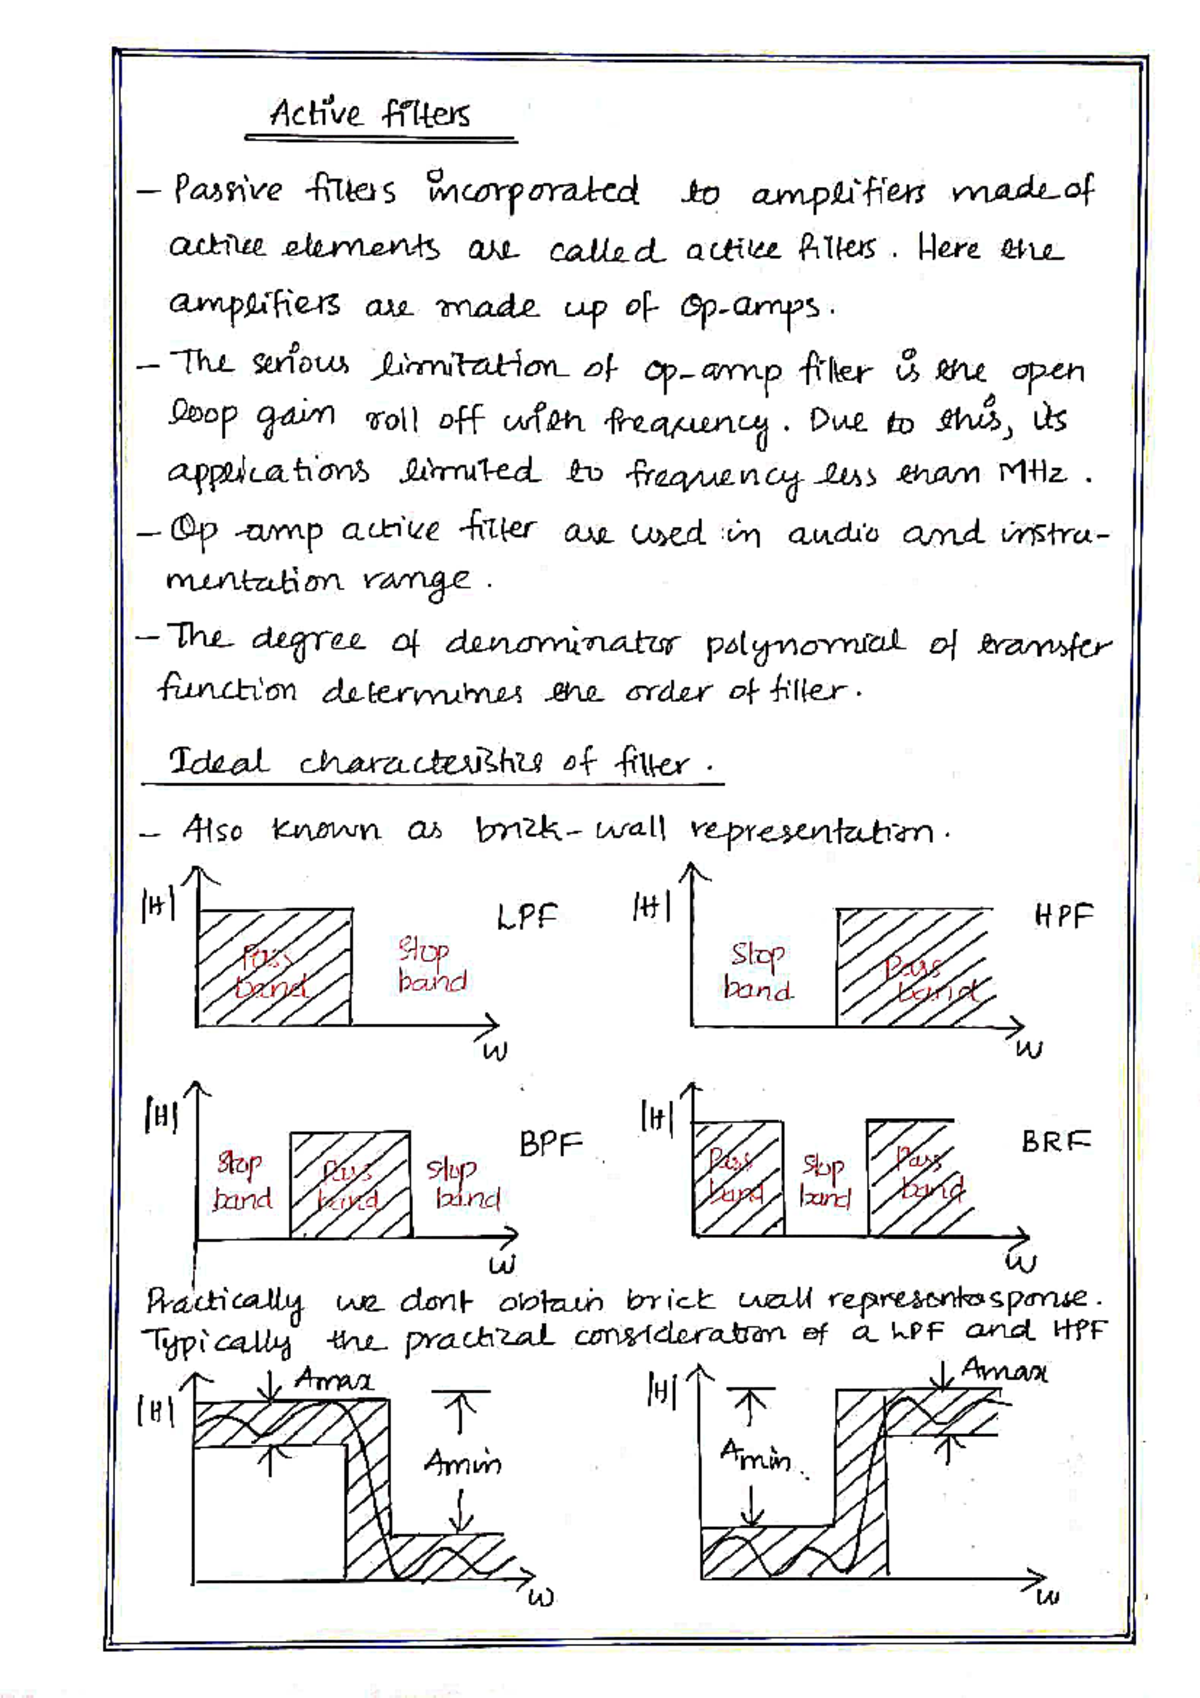 Active filters
– Passive filters incorporated to amplifiers made of
active elements are called active filters. Here the
amplifiers are made up of op-amps.
– The serious limitation of op-amp filter is the open
loop gain roll off with frequency. Due to this, its
applications limited to frequency less than MHz.
– Op amp active filter are used in audio and instru-
mentation range.
– The degree of denominator polynomial of transfer
function determines the order of filter.
Ideal characteristics of filter.
– Also known as brick-wall representation.
|H| LPF |H| HPF
Pass Stop Stop Pass
band band band band
W W
|H| BPF |H| BRF
Stop Pass Stop Pass Stop Pass
band band band band band band
W W
Practically we dont obtain brick wall response.
Typically the practical consideration of a LPF and HPF
|H| Amax |H| Amax
Amin Amin
W W